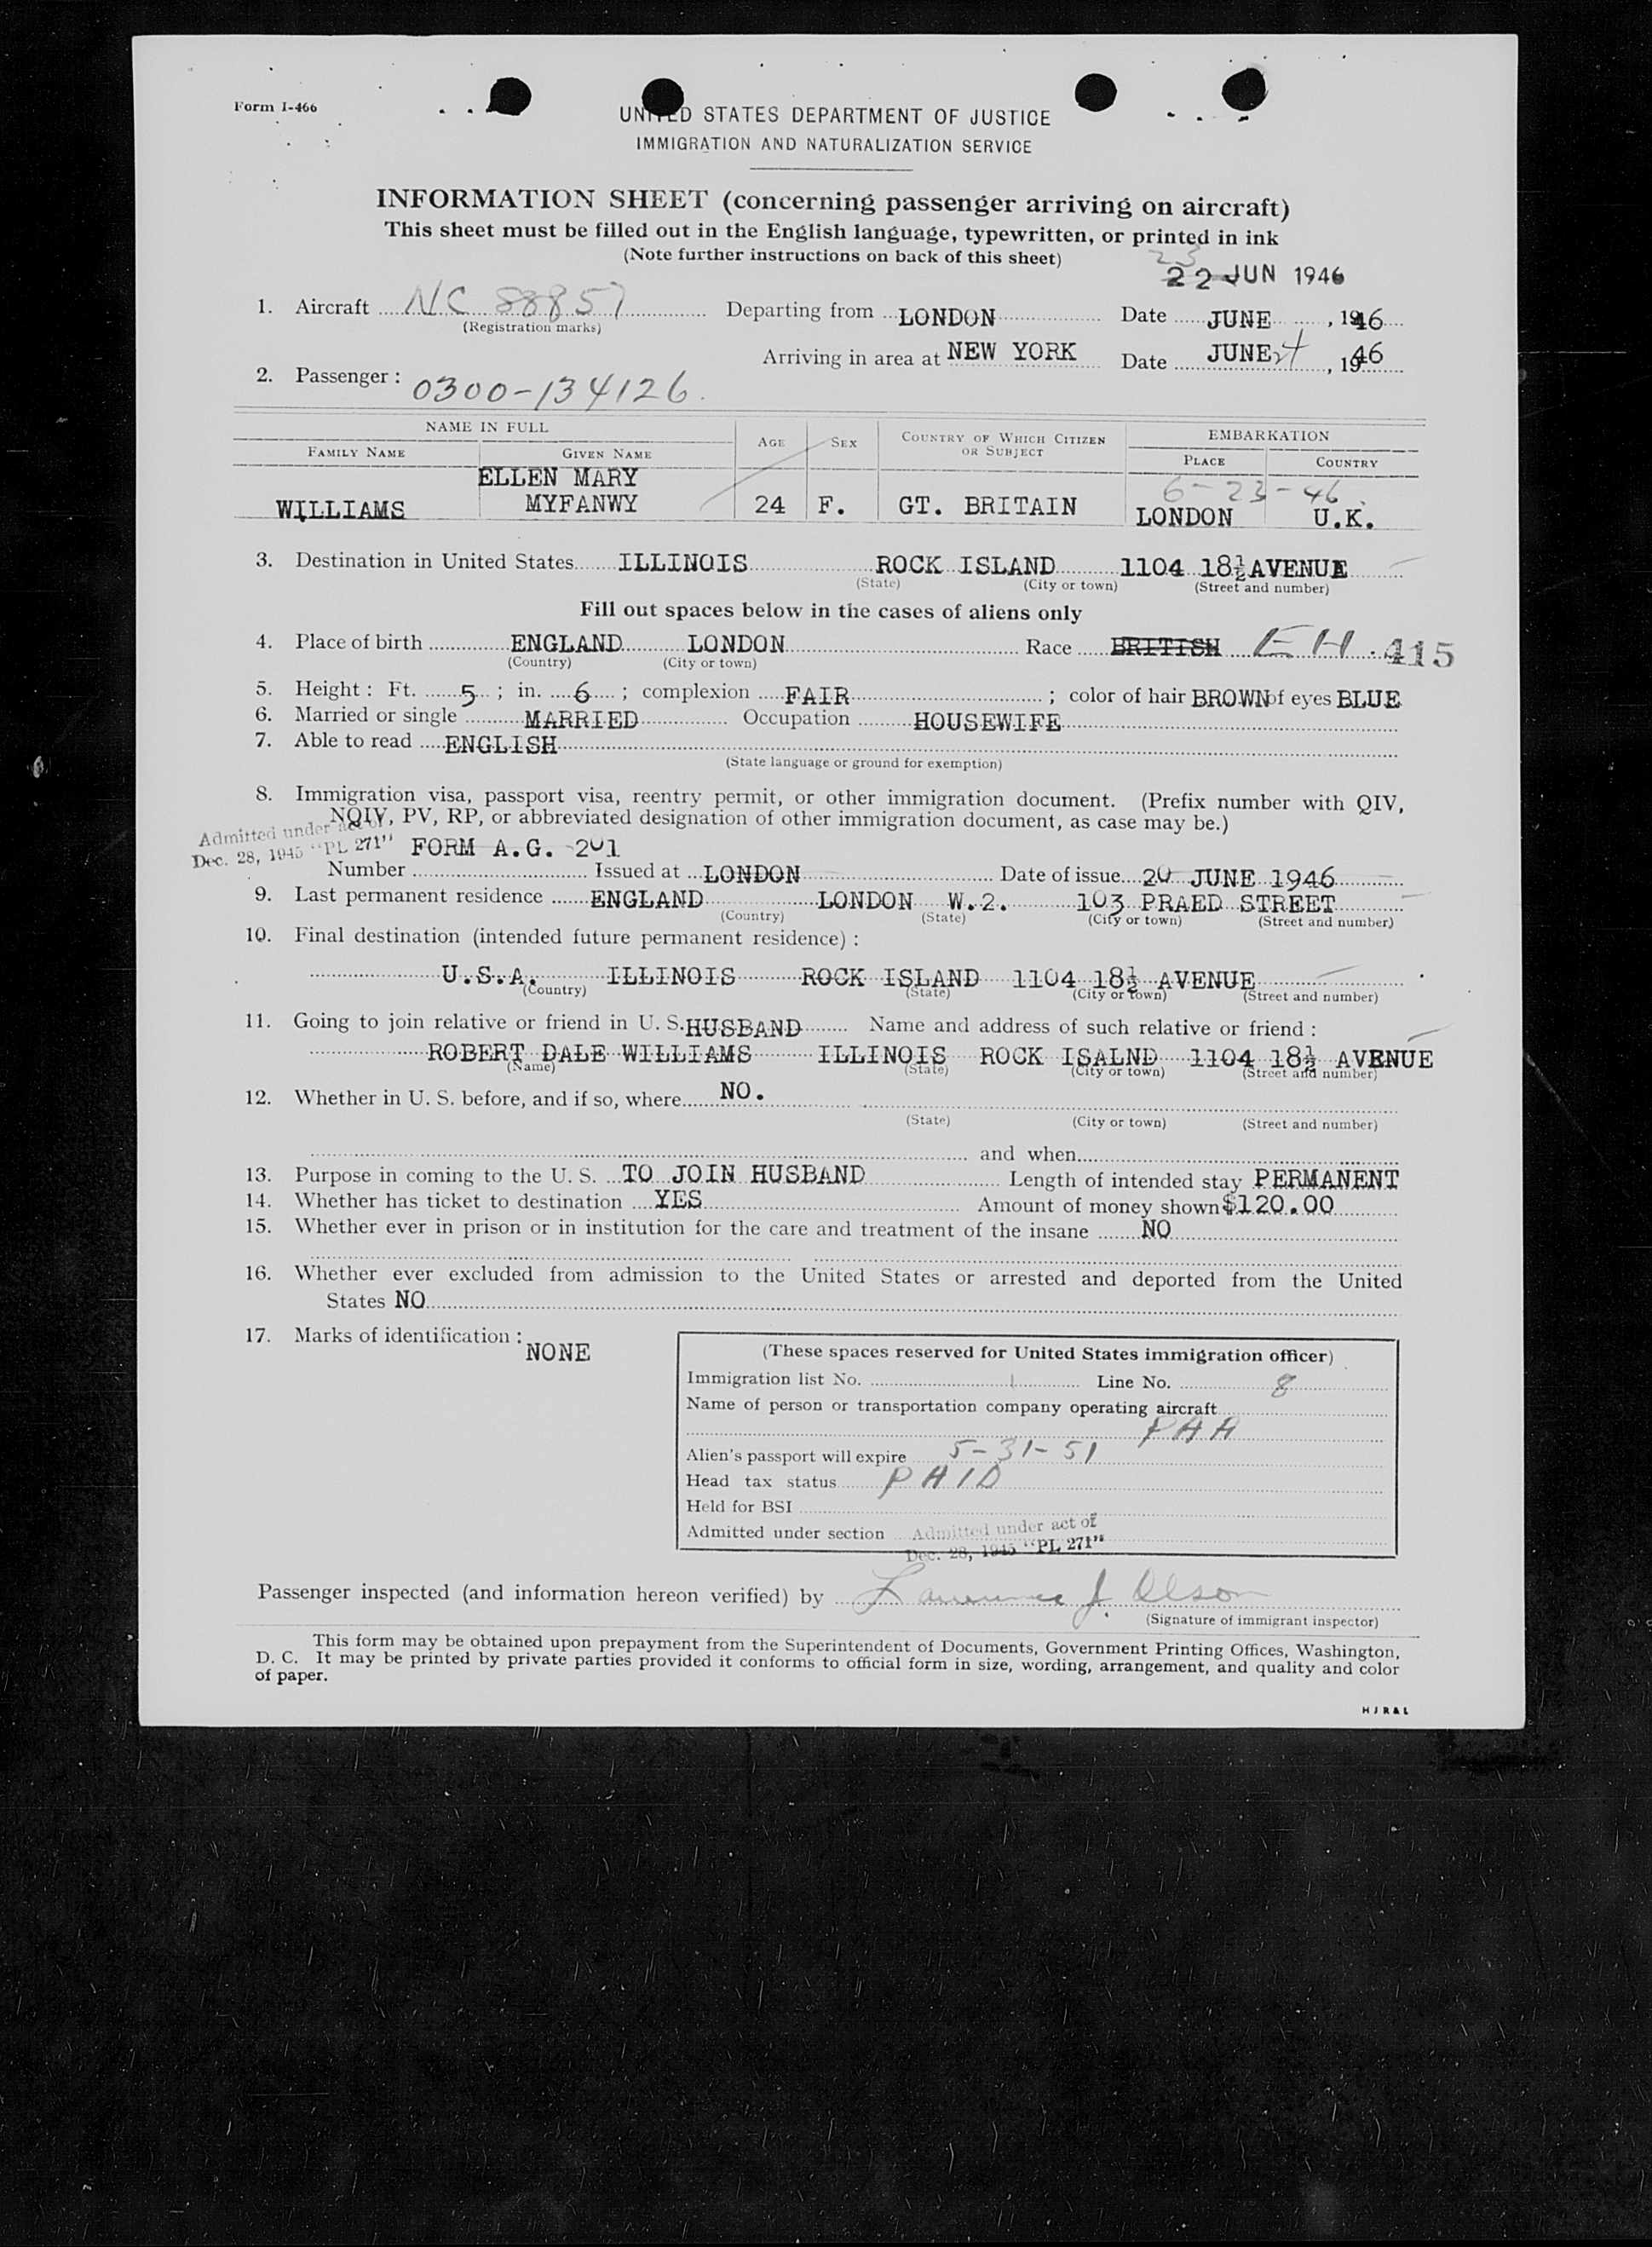 Form I-466
UNITED STATES DEPARTMENT OF JUSTICE
IMMIGRATION AND NATURALIZATION SERVICE
INFORMATION SHEET (concerning passenger arriving on aircraft)
This sheet must be filled out in the English language, typewritten, or printed in ink
(Note further instructions on back of this sheet)
23
22 JUN 1946
1. Aircraft NC 88857 Departing from LONDON Date JUNE, 1946
(Registration marks)
Arriving in area at NEW YORK Date JUNE 24, 1946
2. Passenger: 0300-134126.
NAME IN FULL AGE SEX COUNTRY OF WHICH CITIZEN OR SUBJECT EMBARKATION
FAMILY NAME GIVEN NAME PLACE COUNTRY
ELLEN MARY 6-23-46.
WILLIAMS MYFANWY 24 F. GT. BRITAIN LONDON U.K.
3. Destination in United States ILLINOIS ROCK ISLAND 1104 18½ AVENUE
(State) (City or town) (Street and number)
Fill out spaces below in the cases of aliens only
4. Place of birth ENGLAND LONDON Race BRITISH EH. 415
(Country) (City or town)
5. Height: Ft. 5; in. 6; complexion FAIR; color of hair BROWN of eyes BLUE
6. Married or single MARRIED Occupation HOUSEWIFE
7. Able to read ENGLISH
(State language or ground for exemption)
8. Immigration visa, passport visa, reentry permit, or other immigration document. (Prefix number with QIV,
NQIV, PV, RP, or abbreviated designation of other immigration document, as case may be.)
Admitted under act of
Dec. 28, 1945 "PL 271" FORM A.G. 201
Number Issued at LONDON Date of issue 20 JUNE 1946
9. Last permanent residence ENGLAND LONDON W.2. 103 PRAED STREET
(Country) (State) (City or town) (Street and number)
10. Final destination (intended future permanent residence):
U.S.A. ILLINOIS ROCK ISLAND 1104 18½ AVENUE
(Country) (State) (City or town) (Street and number)
11. Going to join relative or friend in U. S. HUSBAND Name and address of such relative or friend:
ROBERT DALE WILLIAMS ILLINOIS ROCK ISALND 1104 18½ AVENUE
(Name) (State) (City or town) (Street and number)
12. Whether in U. S. before, and if so, where NO.
(State) (City or town) (Street and number)
and when
13. Purpose in coming to the U. S. TO JOIN HUSBAND Length of intended stay PERMANENT
14. Whether has ticket to destination YES Amount of money shown $120.00
15. Whether ever in prison or in institution for the care and treatment of the insane NO
16. Whether ever excluded from admission to the United States or arrested and deported from the United
States NO
17. Marks of identification: NONE
(These spaces reserved for United States immigration officer)
Immigration list No. 1 Line No. 8
Name of person or transportation company operating aircraft
PAA
Alien's passport will expire 5-31-51
Head tax status PAID
Held for BSI
Admitted under section Admitted under act of
Dec. 28, 1945 "PL 271"
Passenger inspected (and information hereon verified) by Lawrence J. Olson
(Signature of immigrant inspector)
This form may be obtained upon prepayment from the Superintendent of Documents, Government Printing Offices, Washington,
D. C. It may be printed by private parties provided it conforms to official form in size, wording, arrangement, and quality and color
of paper.
HJR&L